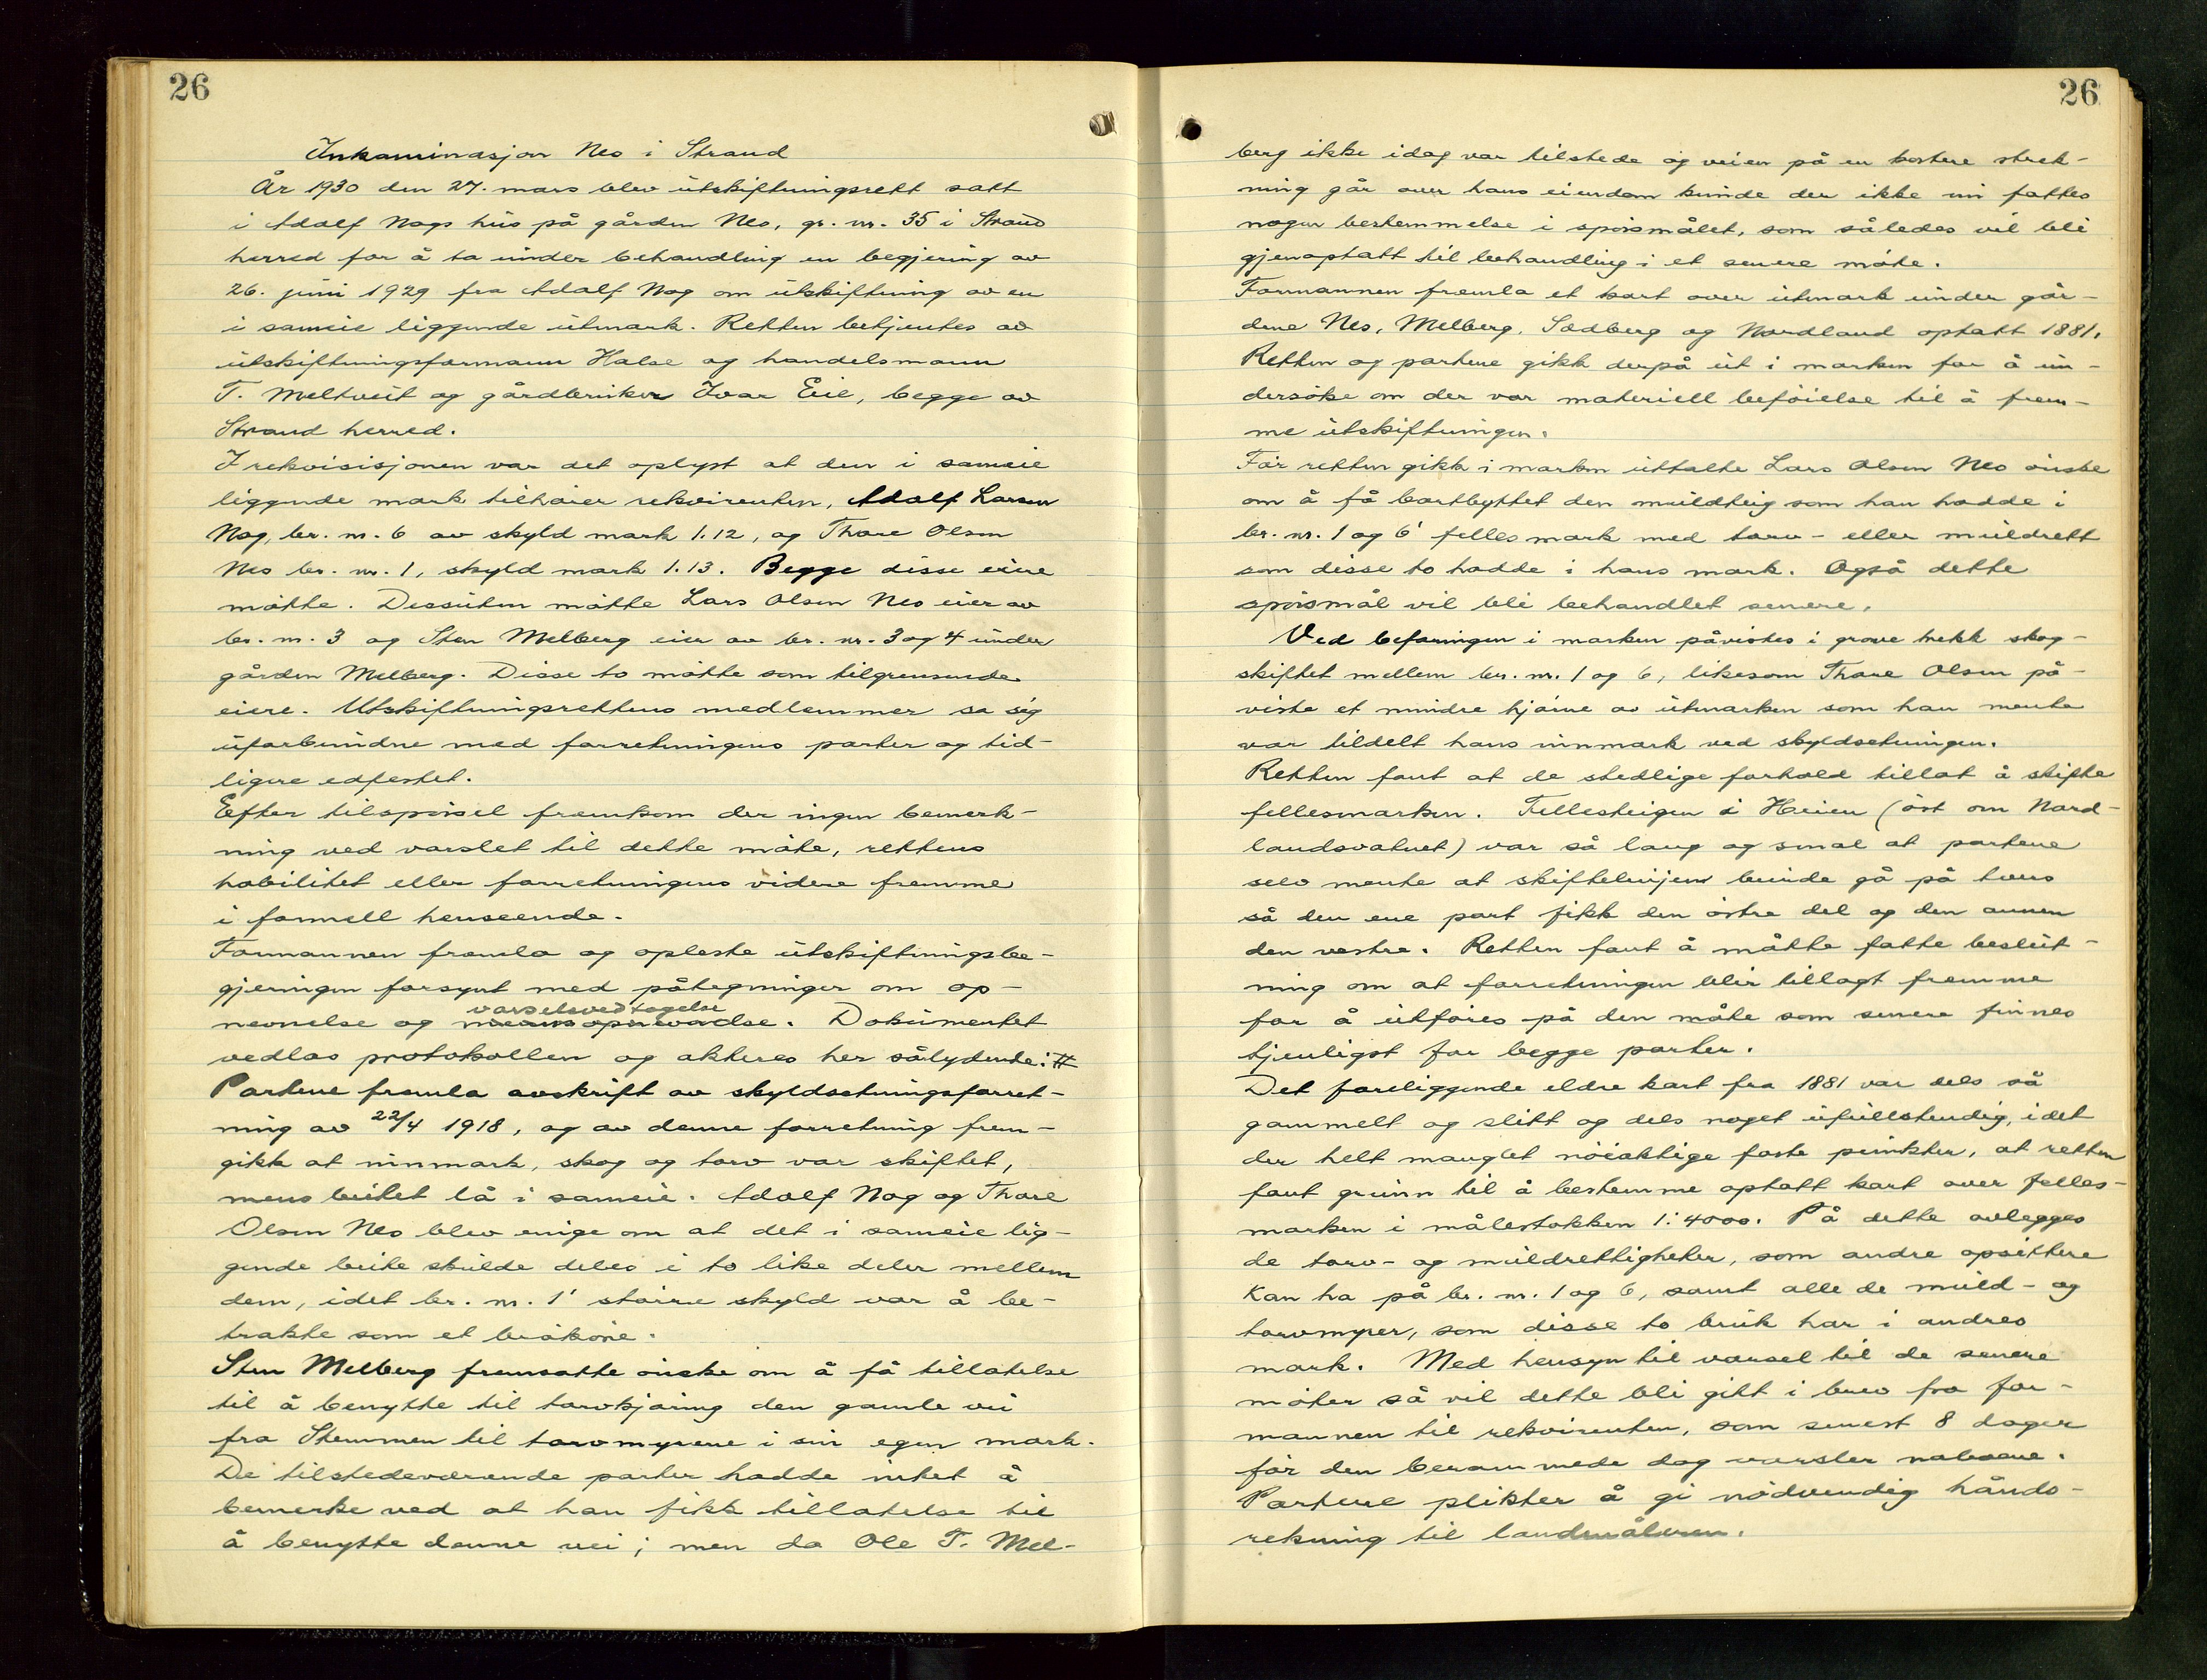 26
Inkaminasjon Nes i Strand
År 1930 den 27. mars blev utskiftningsrett satt
i Adolf Nags hus på gården Nes, gr. nr. 35 i Strand
herred for å ta under behandling en begjering av
26. juni 1929 fra Adolf Nag om utskiftning av en
i sameie liggende utmark. Retten betjentes av
utskiftningsformann Halse og handelsmann
T. Meltveit og gårdbruker Ivar Eie, begge av
Strand herred.
I rekvisisjonen var det oplyst at den i sameie
liggende mark tilhører rekvirenten, Adolf Larsen
Nag, br. nr. 6 av skyld mark 1.12, og Thore Olsen
Nes br. nr. 1, skyld mark 1.13. Begge disse eiere
møtte. Dessuten møtte Lars Olsen Nes eier av
br. nr. 3 og Sten Melberg eier av br. nr. 3 og 4 under
gården Melberg. Disse to møtte som tilgrensende
eiere. Utskiftningsrettens medlemmer sa sig
uforbundne med forretningens parter og tid-
ligere edfestet.
Efter tilspørsel fremkom der ingen bemerk-
ning ved varslet til dette møte, rettens
habilitet eller forretningens videre fremme
i formell henseende.
Formannen fremla og opleste utskiftningsbe-
gjeringen forsynt med påtegninger om op-
varselsvedtagelse
nevnelse og . Dokumentet
vedlas protokollen og akteres her sålydende: #
Partene fremla avskrift av skyldsetningsforret-
ning av 22/4 1918, og av denne forretning frem-
gikk at innmark, skog og torv var skiftet,
mens beitet lå i sameie. Adolf Nag og Thore
Olsen Nes blev enige om at det i sameie lig-
gende beite skulde deles i to like deler mellem
dem, idet br. nr. 1' større skyld var å be-
trakte som et brøkøre.
Sten Melberg fremsatte ønske om å få tillatelse
til å benytte til torvkjøring den gamle vei
fra Stemmen til torvmyrene i sin egen mark.
De tilstedeværende parter hadde intet å
bemerke ved at han fikk tillatelse til
å benytte denne vei; men da Ole T. Mel-
26
berg ikke idag var tilstede og veien på en kortere strek-
ning går over hans eiendom kunde der ikke nu fattes
nogen bestemmelse i spørsmålet, som således vil bli
gjenoptatt til behandling i et senere møte.
Formannen fremla et kart over utmark under går-
dene Nes, Melberg, Sødberg og Nordland optatt 1881.
Retten og partene gikk derpå ut i marken for å un-
dersøke om der var materiell beføielse til å frem-
me utskiftningen.
Før retten gikk i marken uttalte Lars Olsen Nes ønske
om å få bortbyttet den muldteig som han hadde i
br. nr. 1 og 6' fellesmark med torv- eller muldrett
som disse to hadde i hans mark. Også dette
spørsmål vil bli behandlet senere.
Ved befaringen i marken påvistes i grove trekk skog-
skiftet mellem br. nr. 1 og 6, likesom Thore Olsen på-
viste et mindre hjørne av utmarken som han mente
var tildelt hans innmark ved skyldsetningen.
Retten fant at de stedlige forhold tillot å skifte
fellesmarken. Fellesteigen i Heien (øst om Nord-
landsvatnet) var så lang og smal at partene
selv mente at skiftelinjen kunde gå på tvers
så den ene part fikk den østre del og den annen
den vestre. Retten fant å måtte fatte beslut-
ning om at forretningen blir tillagt fremme
for å utføres på den måte som senere finnes
tjenligst for begge parter.
Det foreliggende eldre kart fra 1881 var dels så
gammelt og slitt og dels noget ufullstendig, idet
der helt manglet nøiaktige faste punkter, at retten
fant grunn til å bestemme optatt kart over felles-
marken i målestokken 1:4000. På dette avlegges
de torv- og muldrettigheter, som andre opsittere
kan ha på br. nr. 1 og 6, samt alle de muld- og
torvmyrer, som disse to bruk har i andres
mark. Med hensyn til varsel til de senere
møter så vil dette bli gitt i brev fra for-
mannen til rekvirenten, som senest 8 dager
før den berammede dag varsler naboene.
Partene plikter å gi nødvendig hånds-
rekning til landmåleren.